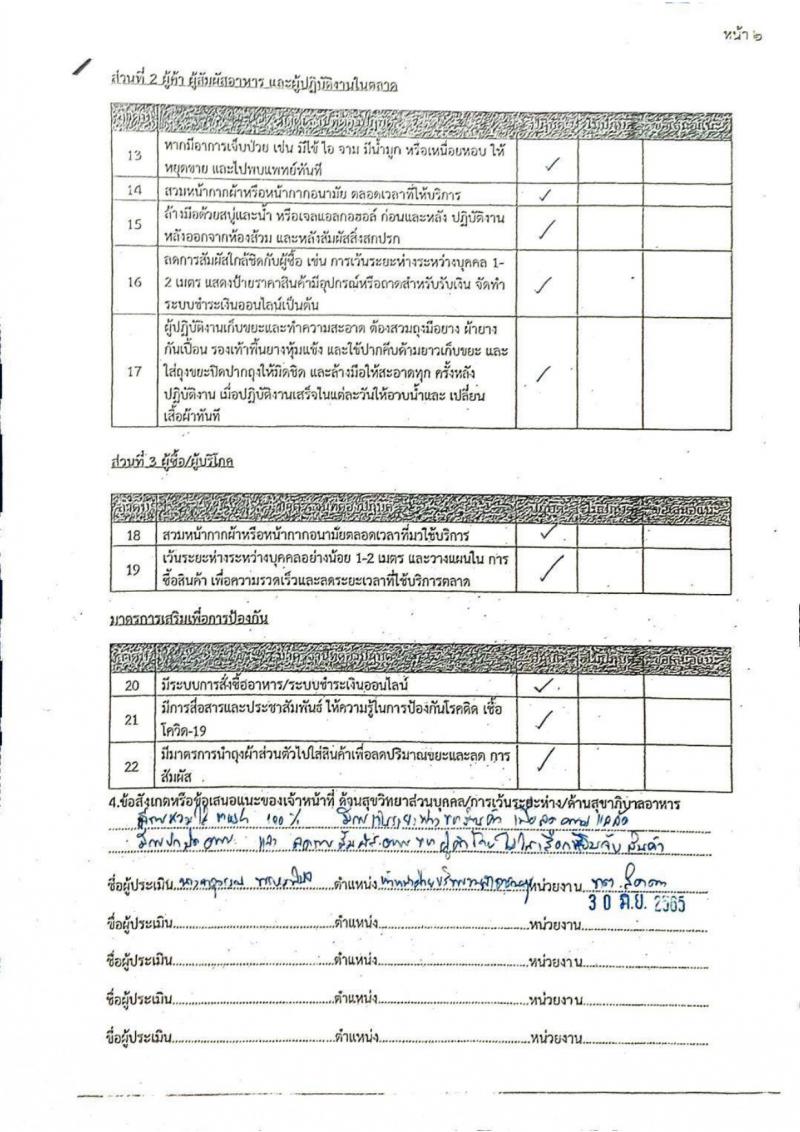 หน้า ๖
ส่วนที่ 2 ผู้ค้า ผู้สัมผัสอาหาร และผู้ปฏิบัติงานในตลาด
13 หากมีอาการเจ็บป่วย เช่น มีไข้ ไอ จาม มีน้ำมูก หรือเหนื่อยหอบ ให้
หยุดขาย และไปพบแพทย์ทันที
14 สวมหน้ากากผ้าหรือหน้ากากอนามัย ตลอดเวลาที่ให้บริการ
15 ล้างมือด้วยสบู่และน้ำ หรือเจลแอลกอฮอล์ ก่อนและหลัง ปฏิบัติงาน
หลังออกจากห้องส้วม และหลังสัมผัสสิ่งสกปรก
16 ลดการสัมผัสใกล้ชิดกับผู้ซื้อ เช่น การเว้นระยะห่างระหว่างบุคคล 1-
2 เมตร แสดงป้ายราคาสินค้ามีอุปกรณ์หรือถาดสำหรับรับเงิน จัดทำ
ระบบชำระเงินออนไลน์เป็นต้น
17 ผู้ปฏิบัติงานเก็บขยะและทำความสะอาด ต้องสวมถุงมือยาง ผ้ายาง
กันเปื้อน รองเท้าพื้นยางหุ้มแข้ง และใช้ปากคีบด้ามยาวเก็บขยะ และ
ใส่ถุงขยะปิดปากถุงให้มิดชิด และล้างมือให้สะอาดทุก ครั้งหลัง
ปฏิบัติงาน เมื่อปฏิบัติงานเสร็จในแต่ละวันให้อาบน้ำและ เปลี่ยน
เสื้อผ้าทันที
ส่วนที่ 3 ผู้ซื้อ/ผู้บริโภค
18 สวมหน้ากากผ้าหรือหน้ากากอนามัยตลอดเวลาที่มาใช้บริการ
19 เว้นระยะห่างระหว่างบุคคลอย่างน้อย 1-2 เมตร และวางแผนใน การ
ซื้อสินค้า เพื่อความรวดเร็วและลดระยะเวลาที่ใช้บริการตลาด
มาตรการเสริมเพื่อการป้องกัน
20 มีระบบการสั่งซื้ออาหาร/ระบบชำระเงินออนไลน์
21 มีการสื่อสารและประชาสัมพันธ์ ให้ความรู้ในการป้องกันโรคติด เชื้อ
โควิด-19
22 มีมาตรการนำถุงผ้าส่วนตัวไปใส่สินค้าเพื่อลดปริมาณขยะและลด การ
สัมผัส
4.ข้อสังเกตหรือข้อเสนอแนะของเจ้าหน้าที่ ด้านสุขวิทยาส่วนบุคคล/การเว้นระยะห่าง/ด้านสุขาภิบาลอาหาร
100%
ชื่อผู้ประเมิน ตำแหน่ง หน่วยงาน
30 มิ.ย. 2565
ชื่อผู้ประเมิน ตำแหน่ง หน่วยงาน
ชื่อผู้ประเมิน ตำแหน่ง หน่วยงาน
ชื่อผู้ประเมิน ตำแหน่ง หน่วยงาน
ชื่อผู้ประเมิน ตำแหน่ง หน่วยงาน